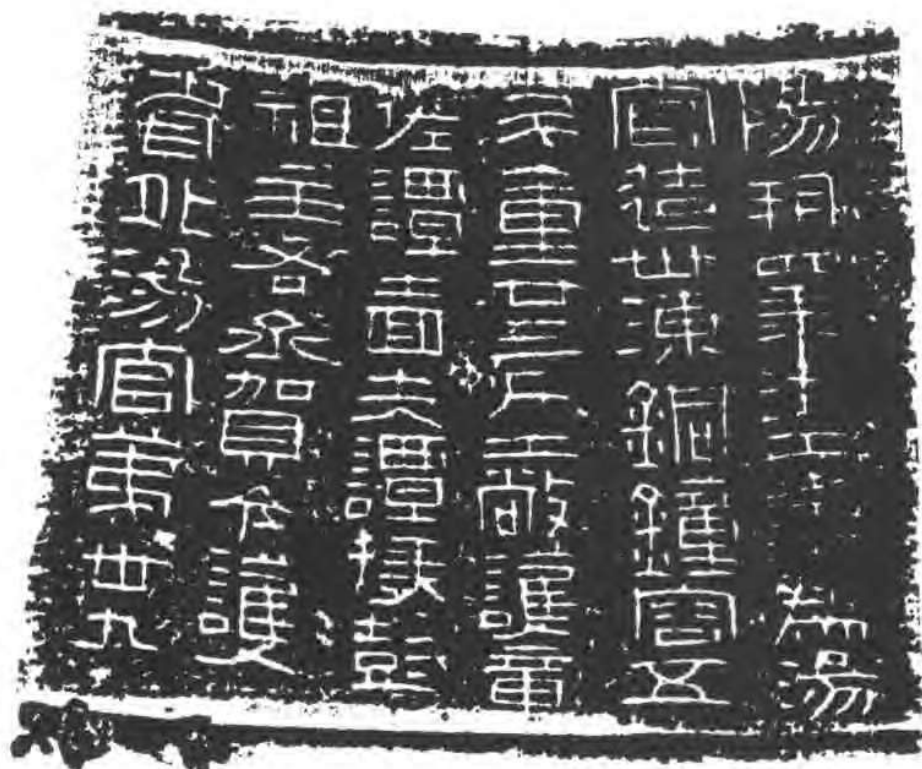 陽朔四年考工爲湯
官造卅湅銅鍾容五
斗重廿三斤工敞護章
佐譚嗇夫譚掾彭
祖主右丞賀令護
省北湯官第卅九